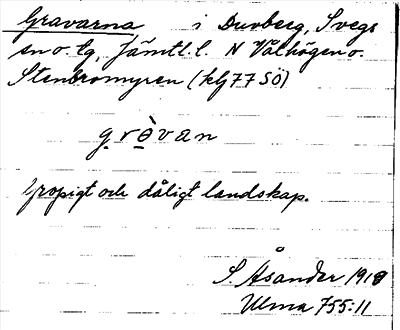 Gravarna i Duvberg, Svegs
sn o. tg, Jämtl. l. N Vålhögen o.
Stenbromyren (klj 77 SÖ)
grɵ̀van
Gropigt och dåligt landskap.
S. Åsander 1918
Ulma 755:11